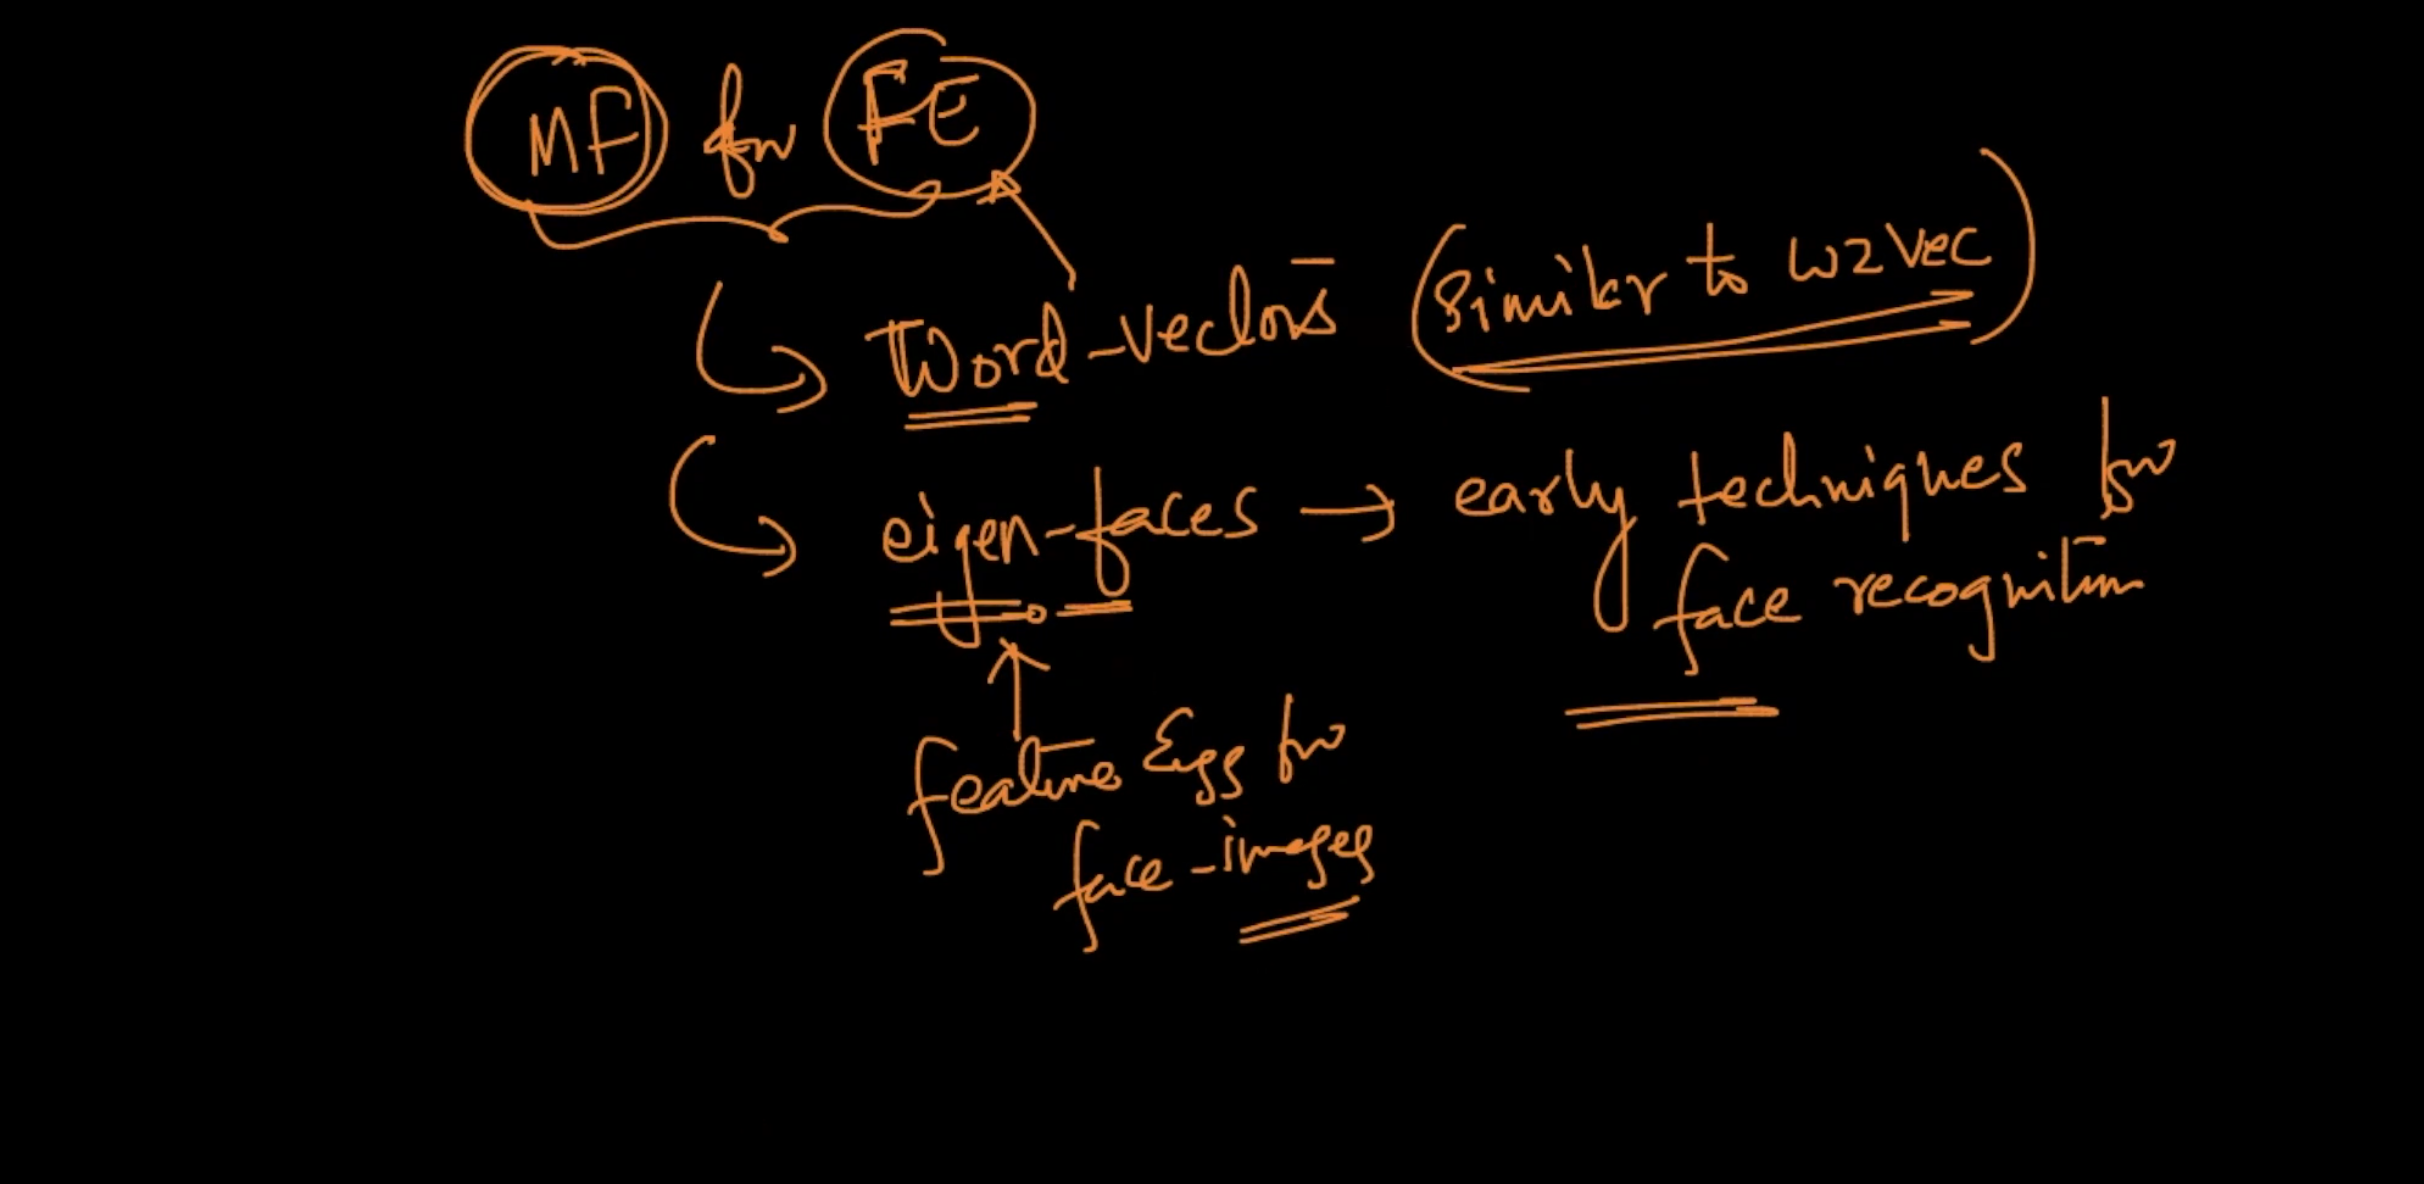 MF for FE
Word-vectors (Similar to w2vec)
eigen-faces → early techniques for
face recognition
feature Engg for
face-images